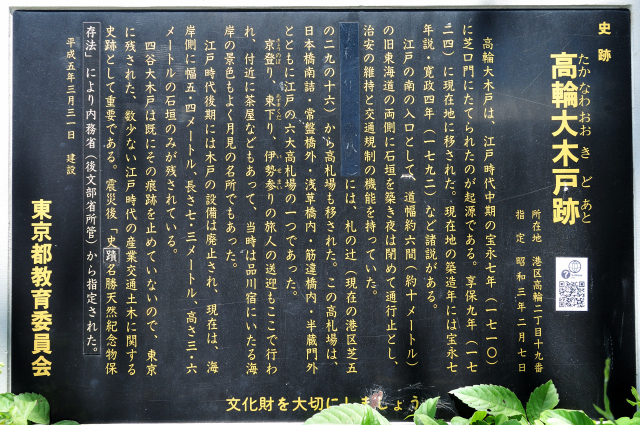 史跡
高輪大木戸跡
たかなわおおきどあと
所在地 港区高輪二丁目十九番
指定 昭和三年二月七日
高輪大木戸は、江戸時代中期の宝永七年（一七一〇）
に芝口門にたてられたのが起源である。享保九年（一七
二四）に現在地に移された。現在地の築造年には宝永七
年説・寛政四年（一七九二）など諸説がある。
江戸の南の入口として、道幅約六間（約十メートル）
の旧東海道の両側に石垣を築き夜は閉めて通行止とし、
治安の維持と交通規制の機能を持っていた。
には、札の辻（現在の港区芝五
の二九の十六）から高札場も移された。この高札場は、
日本橋南詰・常盤橋外・浅草橋内・筋違橋内・半蔵門外
とともに江戸の六大高札場の一つであった。
京登り、東下り、伊勢参りの旅人の送迎もここで行わ
れ、付近に茶屋などもあって、当時は品川宿にいたる海
岸の景色もよく月見の名所でもあった。
江戸時代後期には木戸の設備は廃止され、現在は、海
岸側に幅五・四メートル、長さ七・三メートル、高さ三・六
メートルの石垣のみが残されている。
四谷大木戸は既にその痕跡を止めていないので、東京
に残された、数少ない江戸時代の産業交通土木に関する
史跡として重要である。震災後「史蹟名勝天然紀念物保
存法」により内務省（後文部省所管）から指定された。
平成五年三月三一日 建設
東京都教育委員会
文化財を大切にしましょう